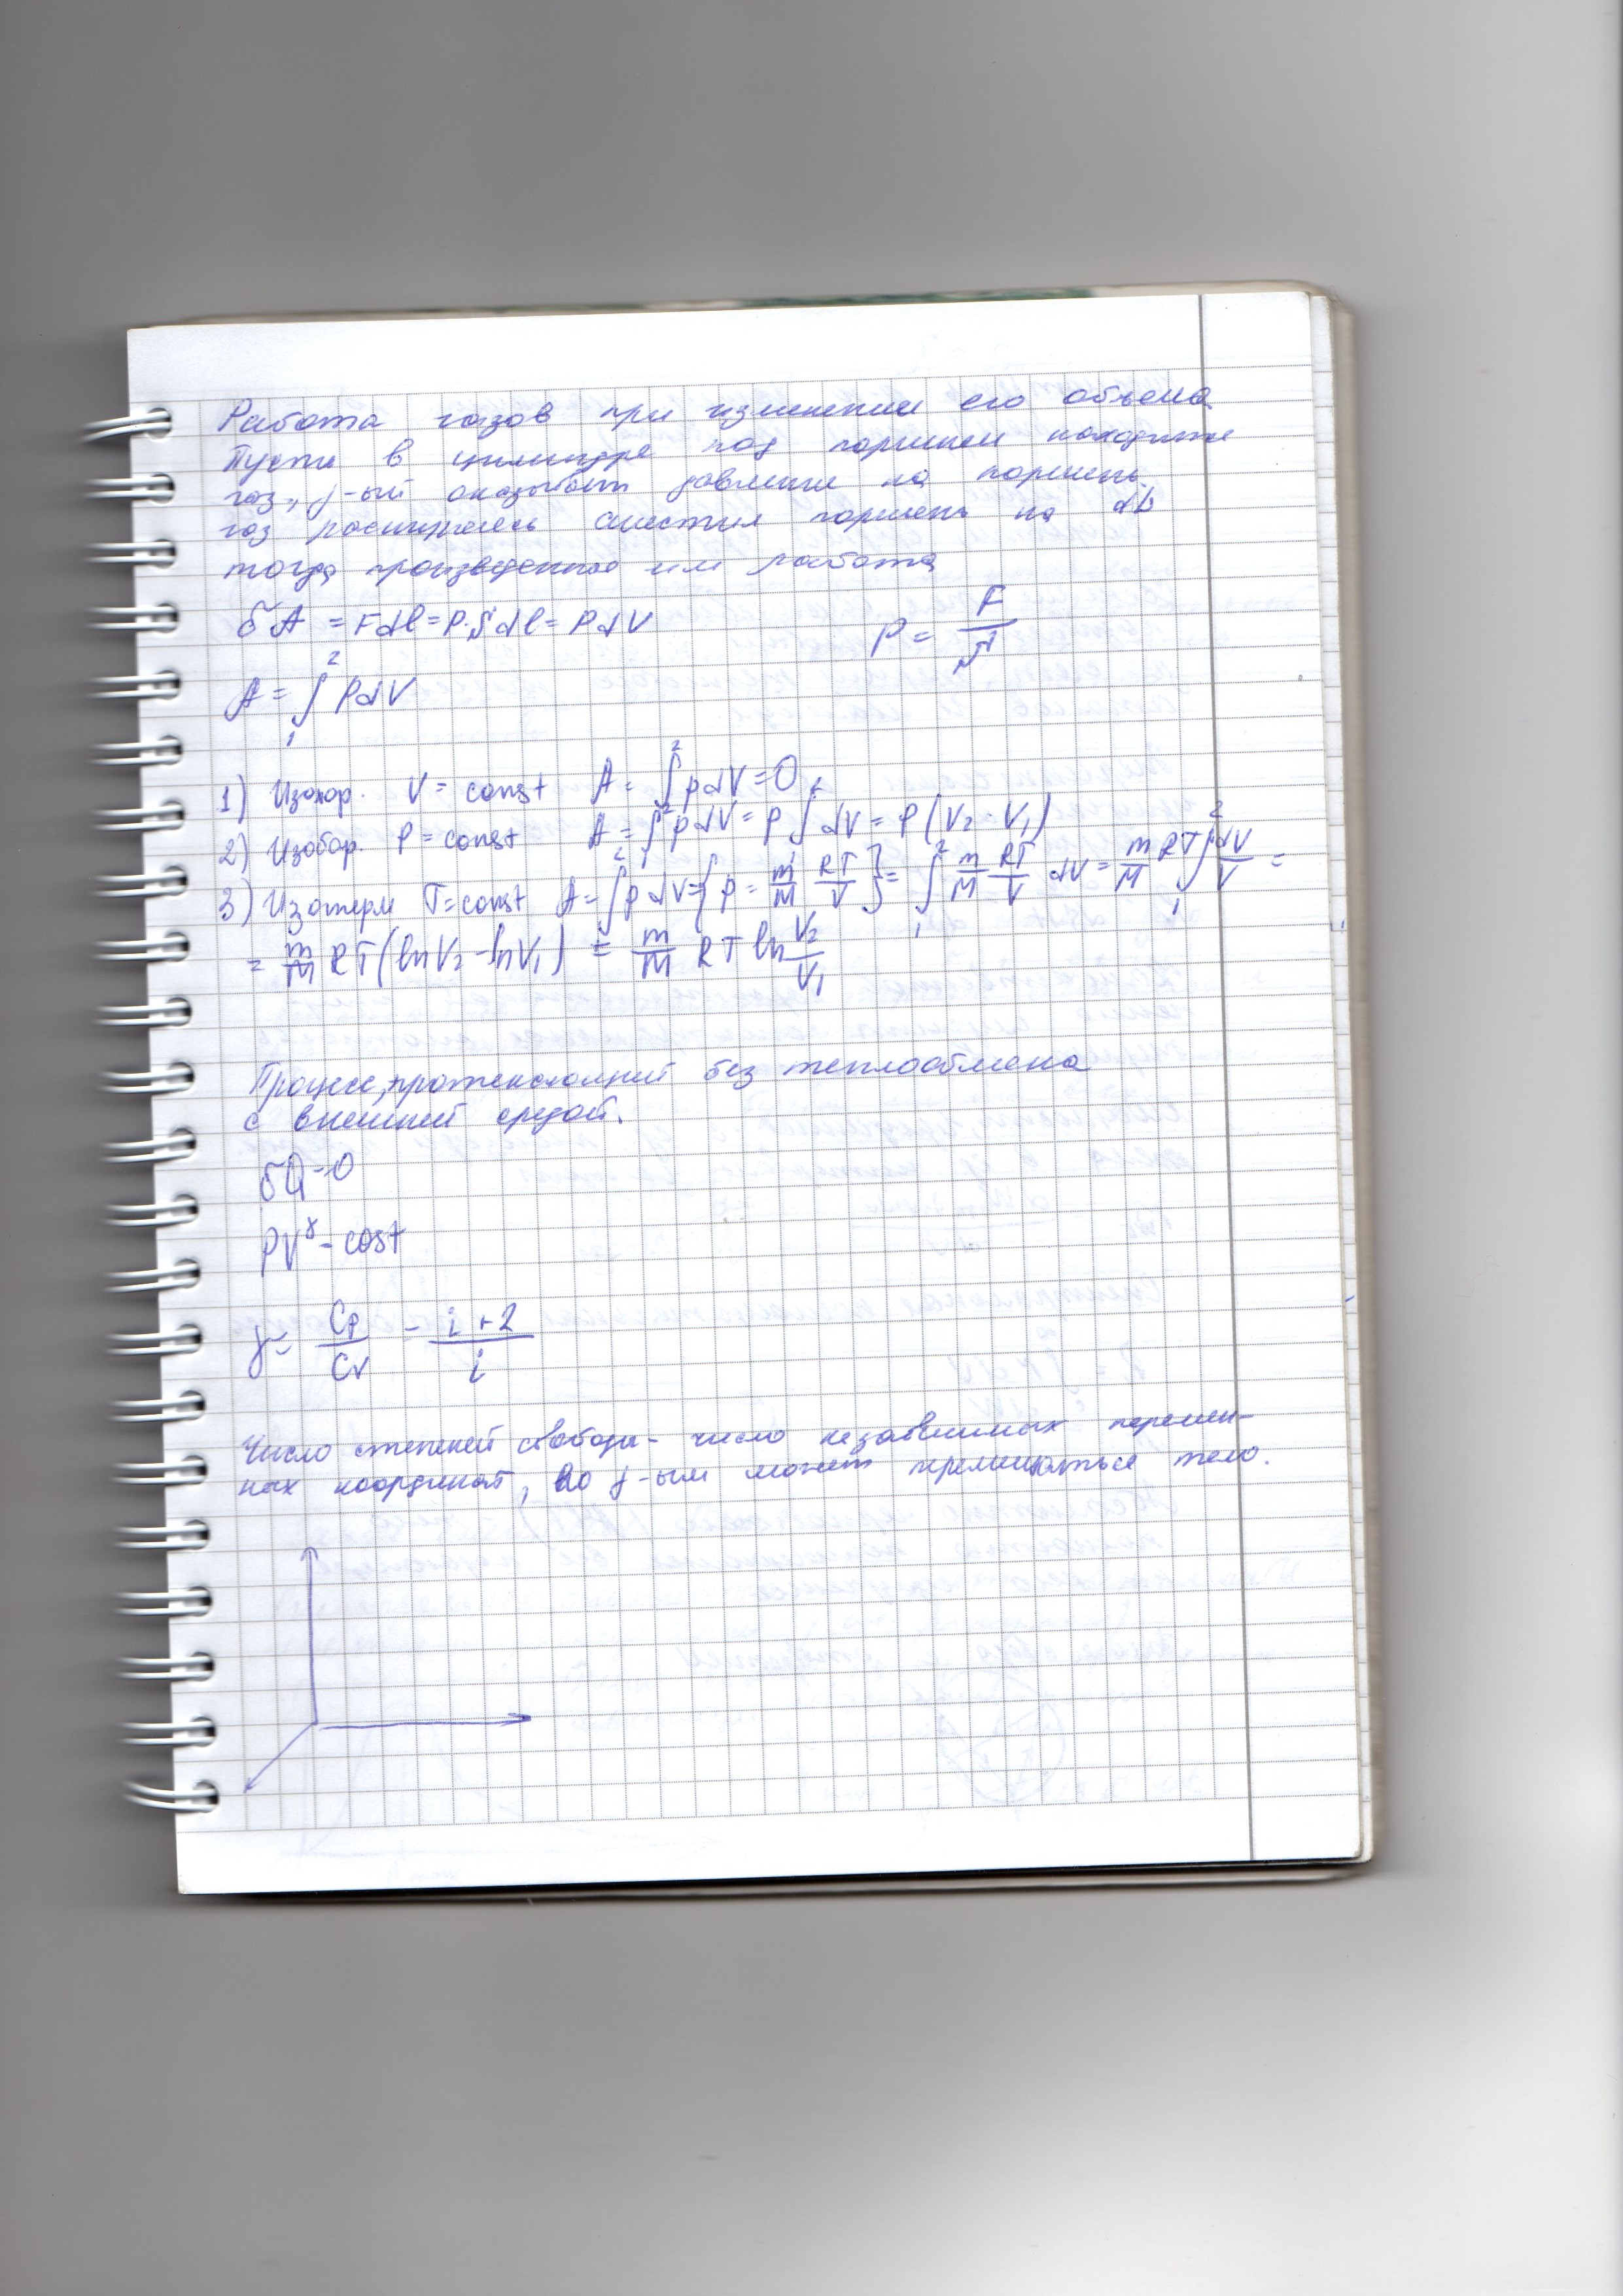 Работа газов при изменении его объема
Пусть в цилиндре под поршнем находится
газ, j-ый оказывает давление на поршень.
газ расширяясь сместил поршень на dl
тогда произведенное им работа
δA = Fdl = P·S dl = PdV        P = F/S
A = ∫₁² PdV
1) Изохор. V = const  A = ∫₁² pdV = 0
2) Изобар. P = const  A = ∫₁² pdV = P ∫₁² dV = P(V₂ - V₁)
3) Изотерм T = const  A = ∫₁² p dV = {p = m/M RT/V} = ∫₁² m/M RT/V dV = m/M RT ∫₁² dV/V =
= m/M RT (lnV₂ - lnV₁) = m/M RT ln V₂/V₁
Процесс, протекающий без теплообмена
с внешней средой.
δQ = 0
PV^γ = cost
γ = Cp/Cv = i+2/i
Число степеней свободы - число независимых перемен-
ных координат, по j-ым может перемещаться тело.